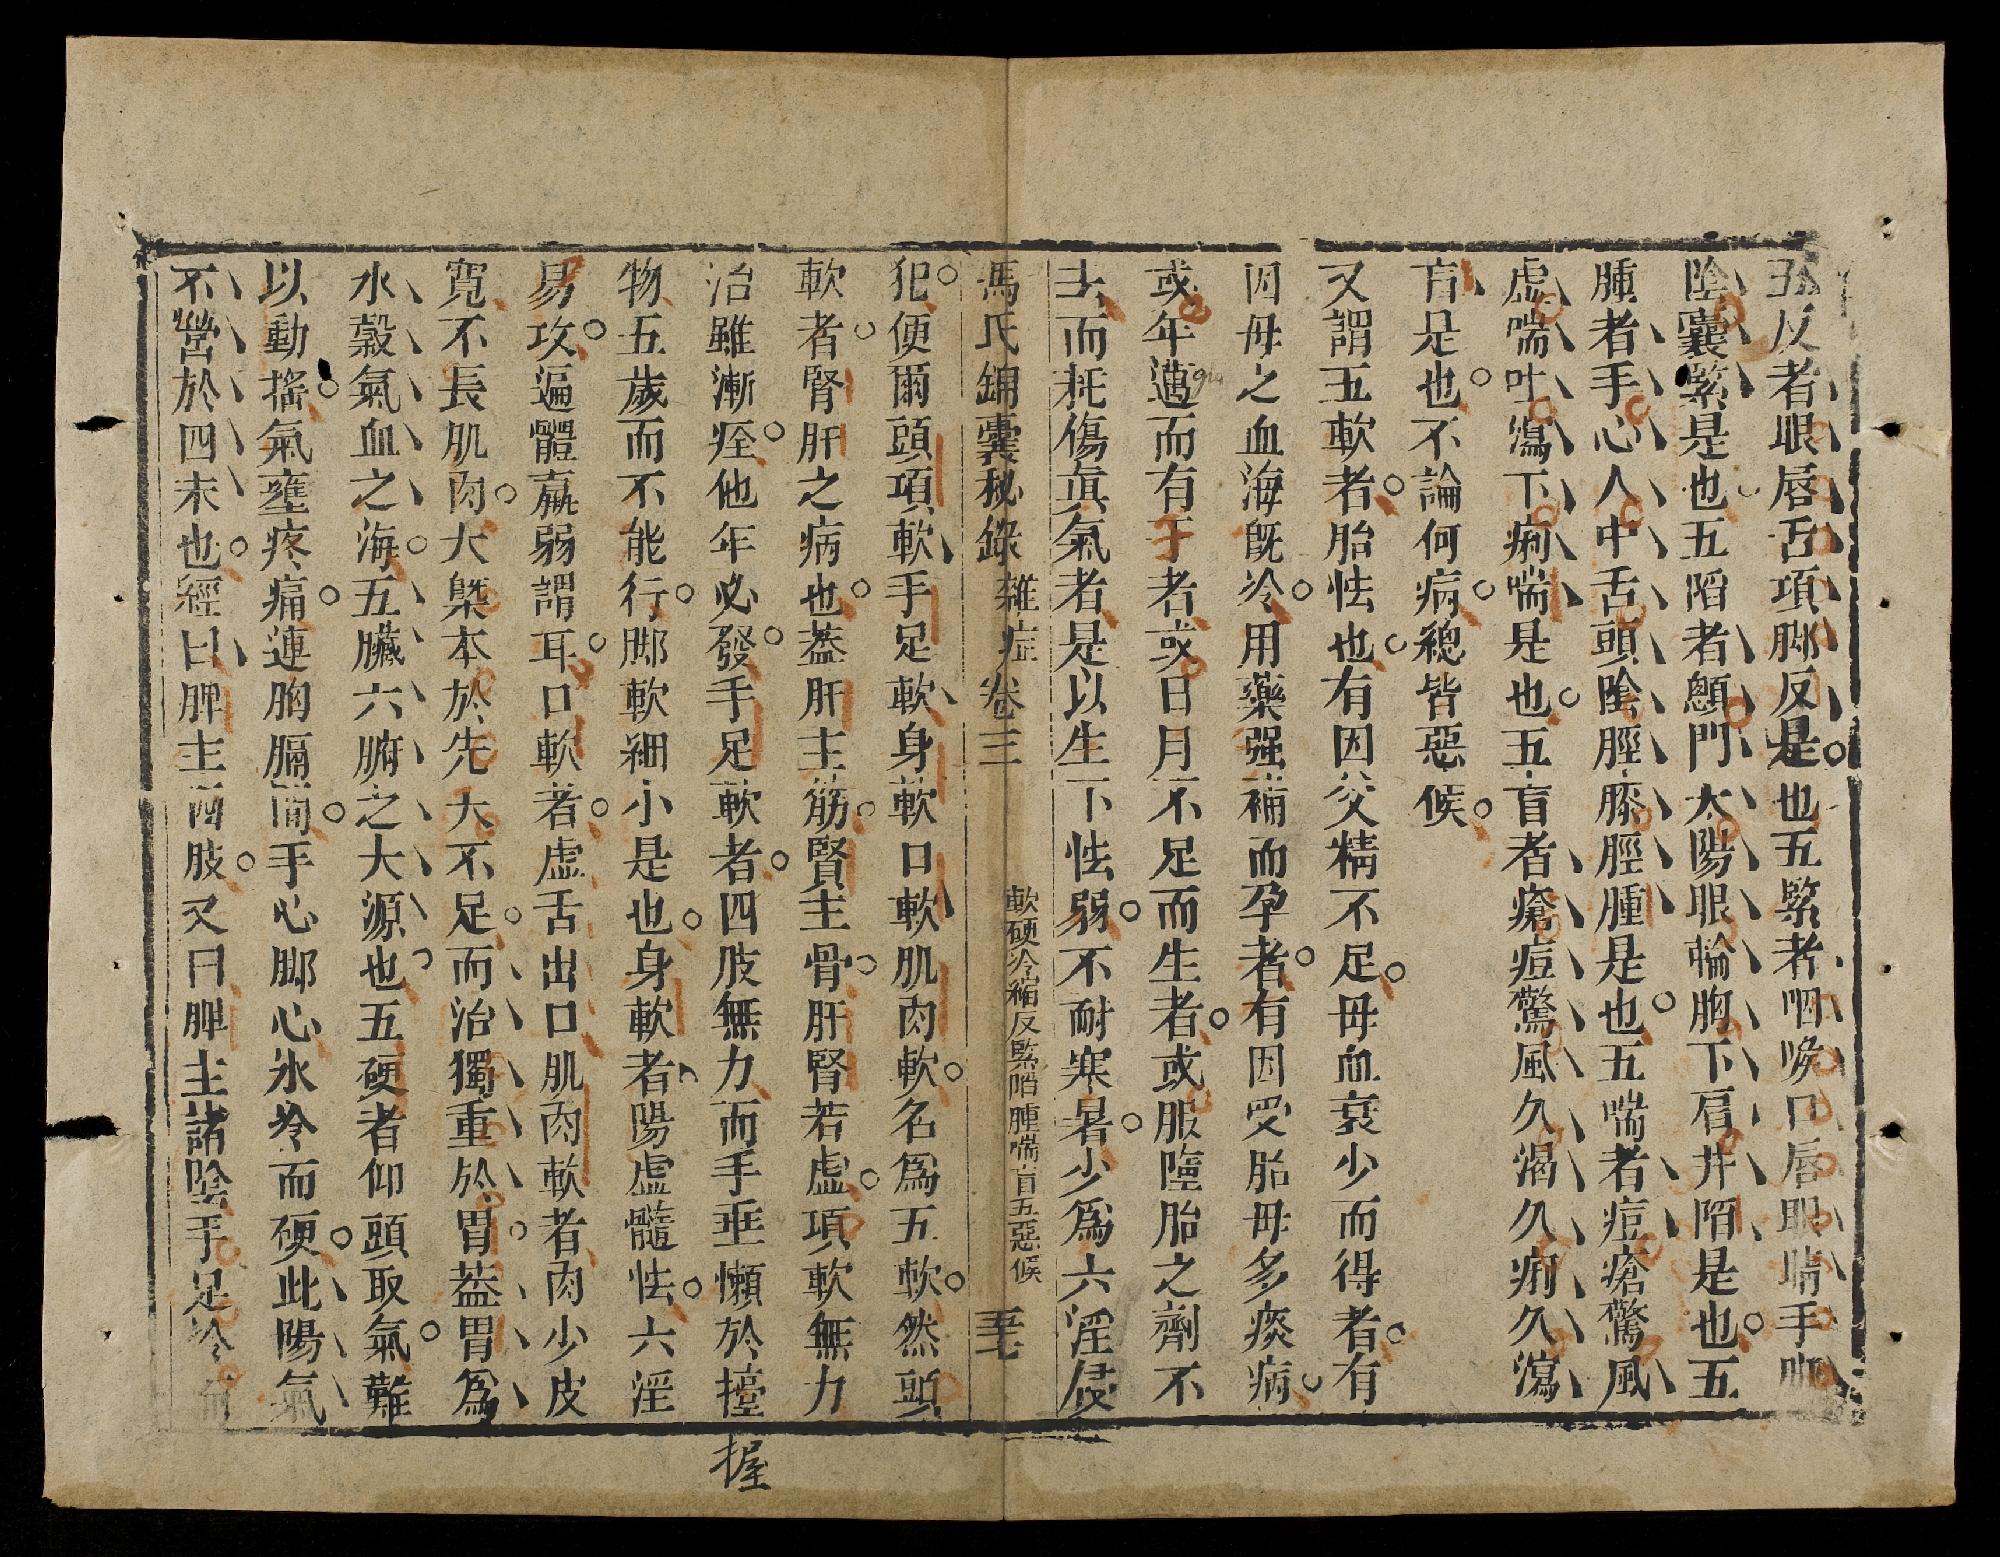 五反者眼唇舌項脚反是也五緊者咽喚口唇眼睛手脚
陰囊緊是也五陷者顖門太陽眼輪胸下肩井陷是也五
腫者手心人中舌頭陰脛膝脛腫是也五喘者痘瘡驚風
虛喘吐瀉下痢喘是也五盲者瘡痘驚風久渴久痢久瀉
盲是也不論何病總皆惡候
又謂五軟者胎怯也有因父精不足母血衰少而得者有
因母之血海旣冷用藥强補而孕者有因受胎母多痰病
或年邁而有于者或日月不足而生者或服墮胎之劑不
去而耗傷眞氣者是以生下怯弱不耐寒暑少爲六淫侵
馮氏錦囊秘錄 雜症 卷三 軟硬冷縮反緊陷腫喘盲五惡候 五七
犯便爾頭項軟手足軟身軟口軟肌肉軟名爲五軟然頭
軟者腎肝之病也葢肝主筋賢主骨肝腎若虛項軟無力
治雖漸痊他年必發手足軟者四肢無力而手垂懶於擡
握
物五歲而不能行脚軟細小是也身軟者陽虛髓怯六淫
易攻遍體羸弱謂耳口軟者虛舌出口肌肉軟者肉少皮
寬不長肌肉大槩本於先大不足而治獨重於胃葢胃爲
水穀氣血之海五臟六腑之大源也五硬者仰頭取氣難
以動搖氣壅疼痛連胸膈間手心脚心氷冷而硬此陽氣
不營於四末也經曰脾主四肢又曰脾主諸陰手足冷而